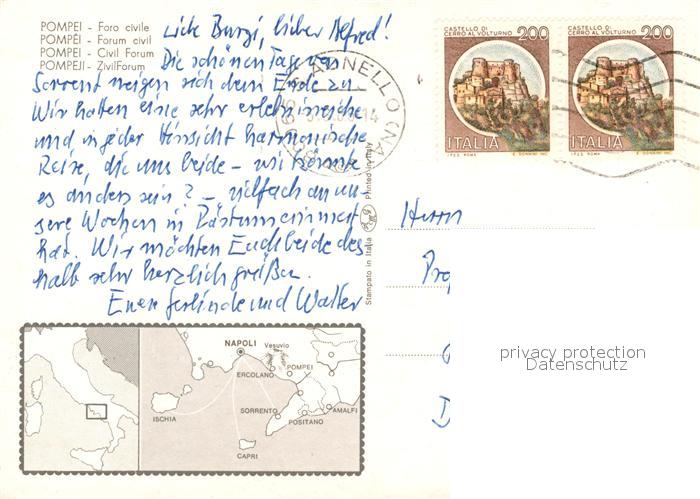 POMPEI - Foro civile
POMPÉI - Forum civil
POMPEI - Civil Forum
POMPEJI - ZivilForum
Liebe Burgi, lieber Alfred!
Die schönen Tage von
Sorrent neigen sich dem Ende zu.
Wir hatten eine sehr erlebnisreiche
und in jeder Hinsicht harmonische
Reise, die uns beide - wie könnte
es anders sein? - vielfach an un-
sere Wochen in Pästum erinnert
hat. Wir möchten Euch beide des-
halb sehr herzlich grüßen.
Eure Gerlinde und Walter
AGNELLO (NA
Stampato in Italia
Printed in Italy
CASTELLO DI
CERRO AL VOLTURNO
200
ITALIA
CASTELLO DI
CERRO AL VOLTURNO
200
ITALIA
Herrn
privacy protection
Datenschutz
NAPOLI
Vesuvio
ERCOLANO
POMPEI
SORRENTO
AMALFI
POSITANO
ISCHIA
CAPRI